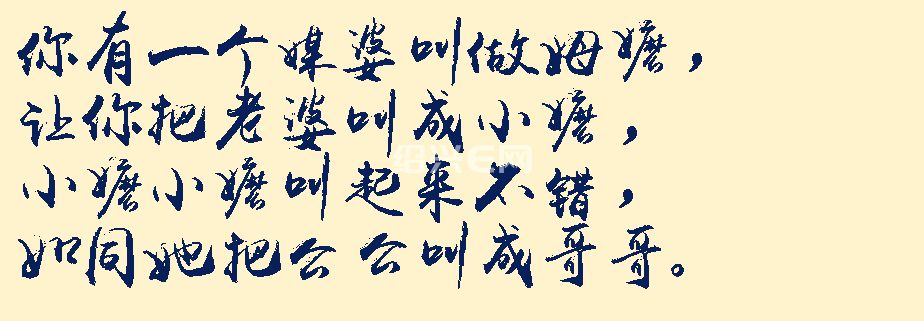 你有一个媒婆叫做姆嬷，
让你把老婆叫成小嬷，
小嬷小嬷叫起来不错，
如同她把公公叫成哥哥。
绍兴E网